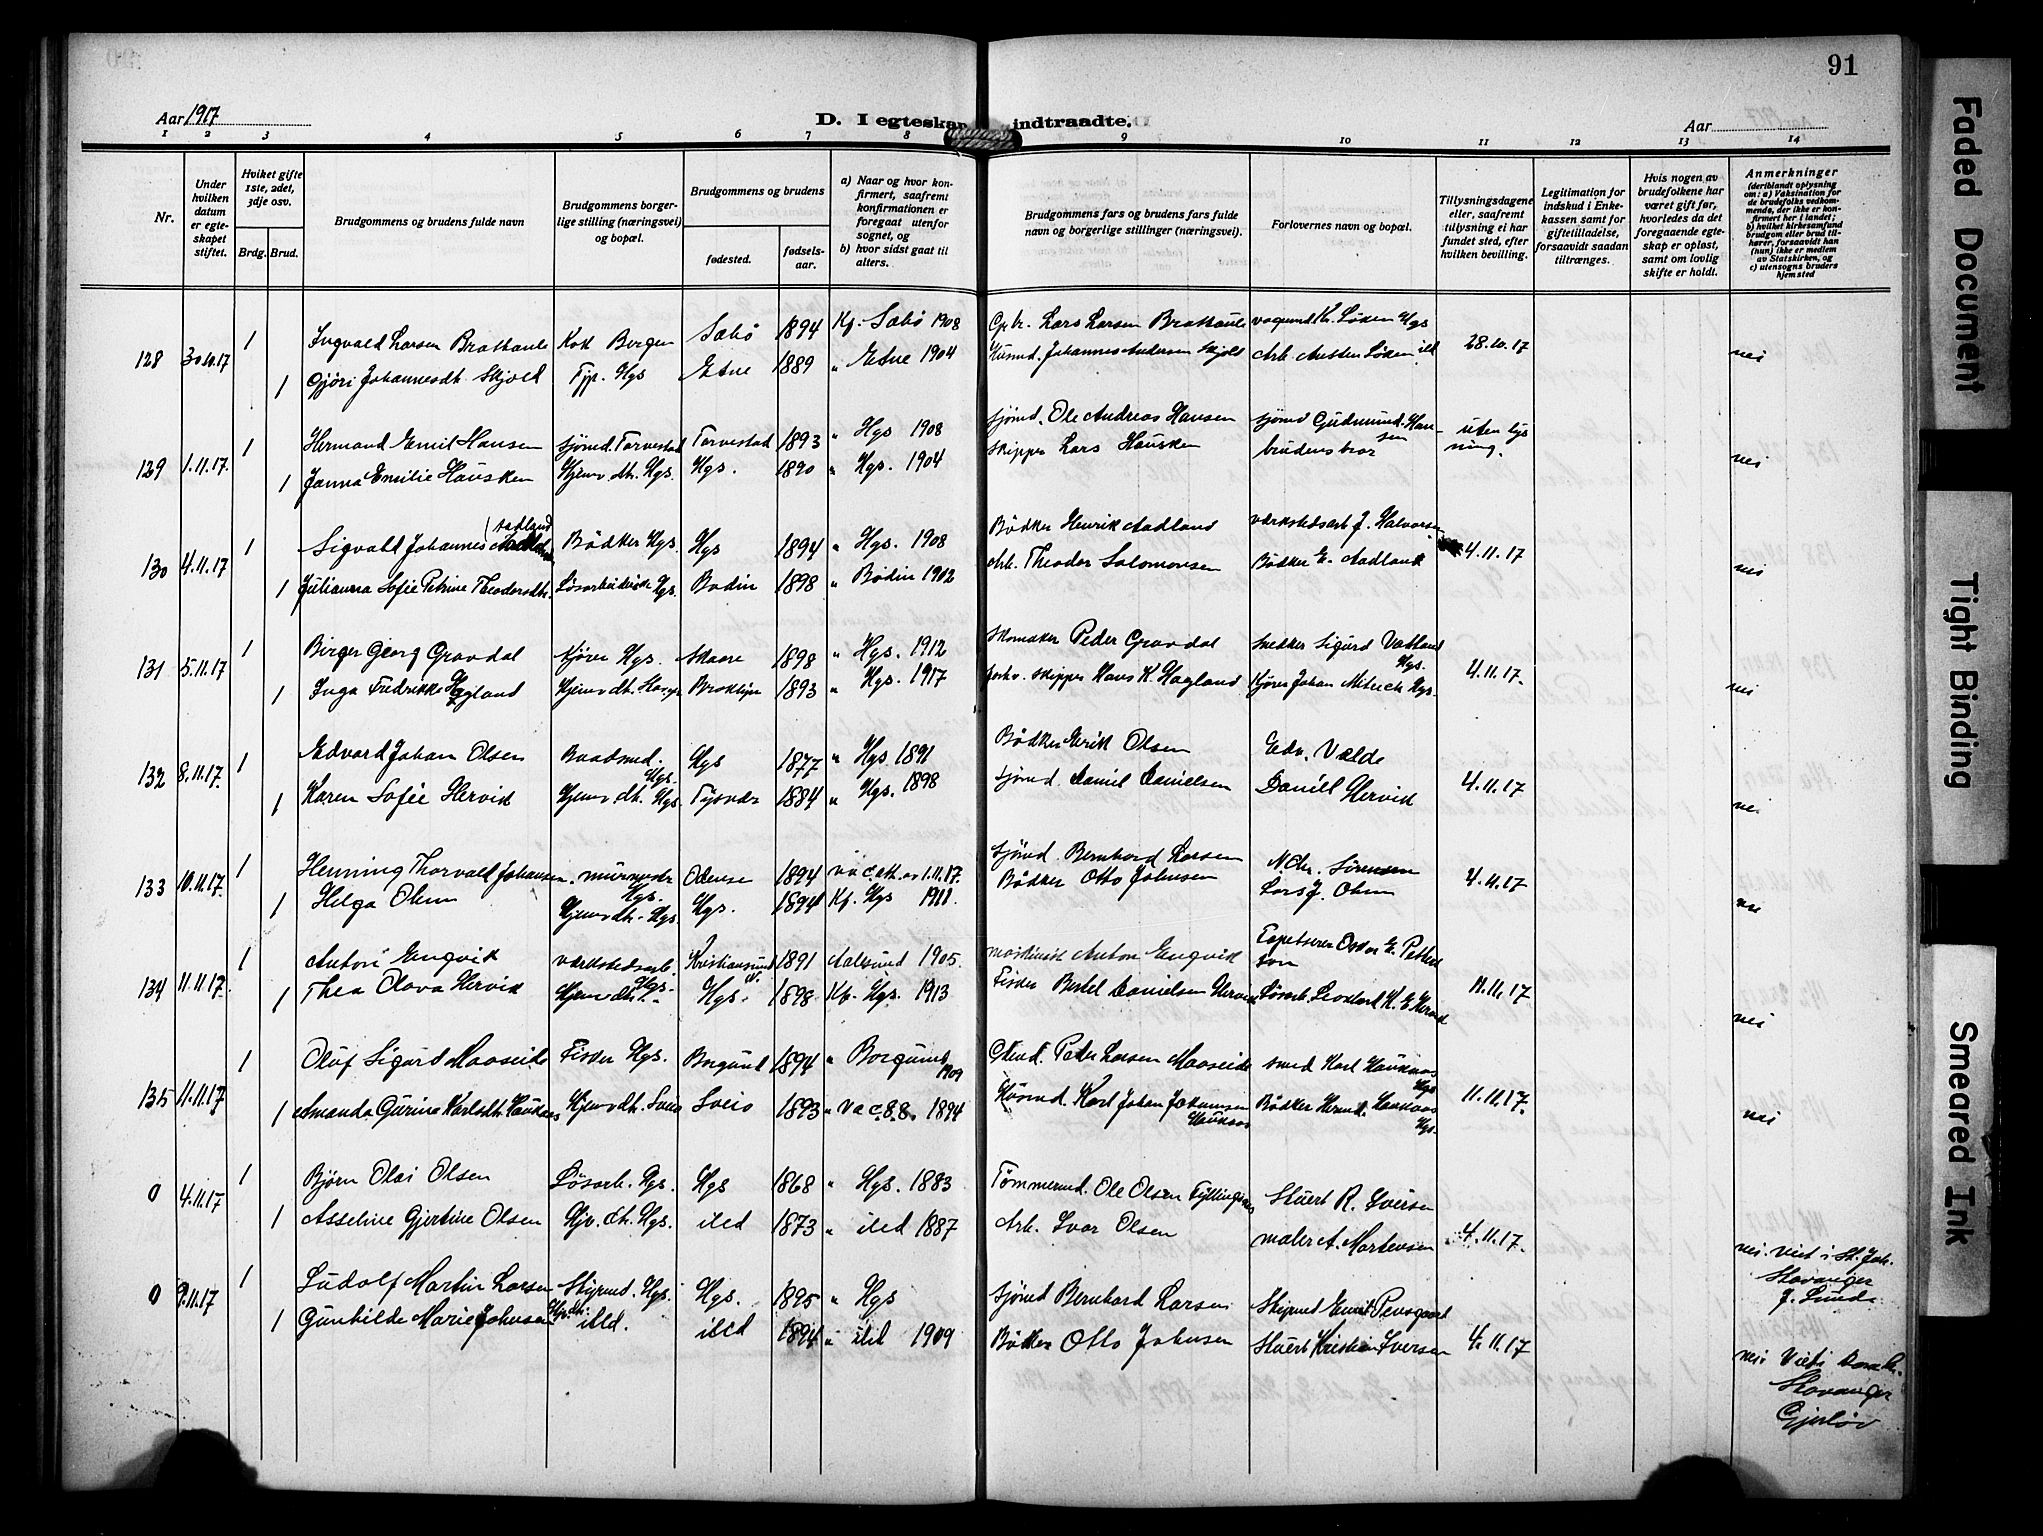 91
Aar 1917
D. I egteskap indtraadte.
Aar
1 2 3 4 5 6 7 8 9 10 11 12 13 14
Nr.
Under hvilken datum er egteskapet stiftet.
Hviket gifte 1ste, 2det, 3dje osv.
Brdg. Brud.
Brudgommens og brudens fulde navn
Brudgommens borgerlige stilling (næringsvei) og bopæl.
Brudgommens og brudens
fødested.
fødselsaar.
a) Naar og hvor konfirmert, saafremt konfirmationen er foregaat utenfor sognet, og
b) hvor sidst gaat til alters.
Brudgommens fars og brudens fars fulde navn og borgerlige stillinger (næringsvei).
Forlovernes navn og bopæl.
Tillysningsdagene eller, saafremt tillysning ei har fundet sted, efter hvilken bevilling.
Legitimation for indskud i Enkekassen samt for giftetilladelse, forsaavidt saadan tiltrænges.
Hvis nogen av brudefolkene har været gift før, hvorledes da det foregaaende egteskap er opløst, samt om lovlig skifte er holdt.
Anmerkninger
(deriblandt oplysning om: a) Vaksination for de brudefolks vedkommende, der ikke er konfirmert her i landet; b) hvilket kirkesamfund brudgom eller brud tilhører, forsaavidt han (hun) ikke er medlem av Statskirken, og c) utensogns bruders hjemsted
128 30.10.17 1 Ingvald Larsen Brattaule Kok Bergen Sæbø 1894 Kf. Sæbø 1908 Lars Larsen Brattaule Kr. Løken Hgs 28.10.17
1 Gjøri Johannesdtr. Skjold Tjp. Hgs Etne 1889 " Etne 1904 Husmd. Johannes Andersen Skjold Arb. Austen Løken ild nei
129 1.11.17. 1 Hermand Emil Hansen Sjømd. Torvestad Torvestad 1893 " Hgs 1908 Sjømd. Ole Andreas Hansen Sjømd Gudmund Hansen uten lysning.
1 Janna Emilie Hausken Hjemv. dtr. Hgs. Hgs. 1890 " Hgs. 1904 Skipper Lars Hausken brudens bror nei
130 4.11.17 1 Sigvald Johannes Aadland Bødker Hgs. Hgs 1894 " Hgs. 1908 Bødker Henrik Aadland Værkstedsarb J. Halvorsen 4.11.17
1 Julianna Sofie Petrine Theodorsdtr. Løsarbeiderske Hgs. Bodin 1898 " Bodin 1912 Arb. Theodor Salomonsen Bødker E. Aadland nei
131 5.11.17 1 Birger Georg Gravdal Kjører Hgs. Skaare 1898 " Hgs. 1912 Skomaker Peder Gravdal Snedker Sigurd Vatland Hgs. 4.11.17.
1 Inga Fredrikke Hagland Hjemv. dtr. Hgs Broklyn 1893 " Hgs. 1917 skipper Hans K. Hagland Kjører Johan Mitrich Hgs. nei
132 8.11.17. 1 Edvard Johan Olsen Baadsmd. Hgs. Hgs 1877 " Hgs 1891 Bødker Erik Olsen Edv. Vælde 4.11.17
1 Karen Sofie Hervik Hjemv. dtr. Hgs Tysvær 1884 " Hgs. 1898 Sjømd Daniel Danielsen Daniel Hervik nei
133 10.11.17. 1 Henning Thorvald Johansen. murmester Hgs. Odense 1894 va c. att. av 1.11.17. Sjømd. Bernhard Larsen N. Chr. Sørensen 4.11.17
1 Helga Olsen Hjemv. dtr. Hgs Hgs. 1894 Kf. Hgs 1911. Bødker Otto Johnsen Lars J. Olsen nei
134 11.11.17. 1 Anton Engvik værkstedsarb. Hgs. Kristiansund N. 1891 Aalesund 1905. maskinist Anton Engvik Tapetserer Oskar E. Petterson 11.11.17
1 Thea Olava Hervik Hjemv. dtr. Hgs. 1898 Kf. Hgs. 1913 Fisker Bertel Danielsen Hervik Løsarb. K. E. Hervik nei
135 11.11.17 1 Oluf Sigurd Maaseide Fisker Hgs. Borgund 1894 " Borgund 1909 Gbmd. Peder Larsen Maaseide Smed Karl Haukaas Hgs 11.11.17.
1 Amanda Gurine Karlsdtr. Haukaas Hjemv. dtr. Sveio Sveio 1893 " va c. 8.8. 1894 Husmd. Karl Johan Johannsen Haukaas Bødker Hermd. Haukaas Hgs. nei
0 4.11.17 1 Bjørn Olai Olsen Løsarb. Hgs. Hgs 1868 " Hgs. 1883 Tømmermd. Ole Olsen Stuert R. Iversen
1 Asseline Gjertine Olsen Hjv. dtr. Hgs. ibid 1873 " ibid 1887 Arb. Ivar Olsen maler A. Mortensen 4.11.17. nei. Viet i St. Joh. Stavanger J. Lunde
0 9.11.17 1 Ludolf Martin Larsen Styrmd. Hgs. Hgs. 1895 " Hgs Sjømd Bernhard Larsen Styrmd Emil Pensgaard
1 Gunhilde Marie Johnsen Hjv. dtr. ibid. ibid 1894 " ibid 1909 Bødker Otto Johnsen Stuert Kristian Iversen 4.11.17 nei. Viet i Domk. Stavanger Gjerløv
Faded Document
Tight Binding
Smeared Ink